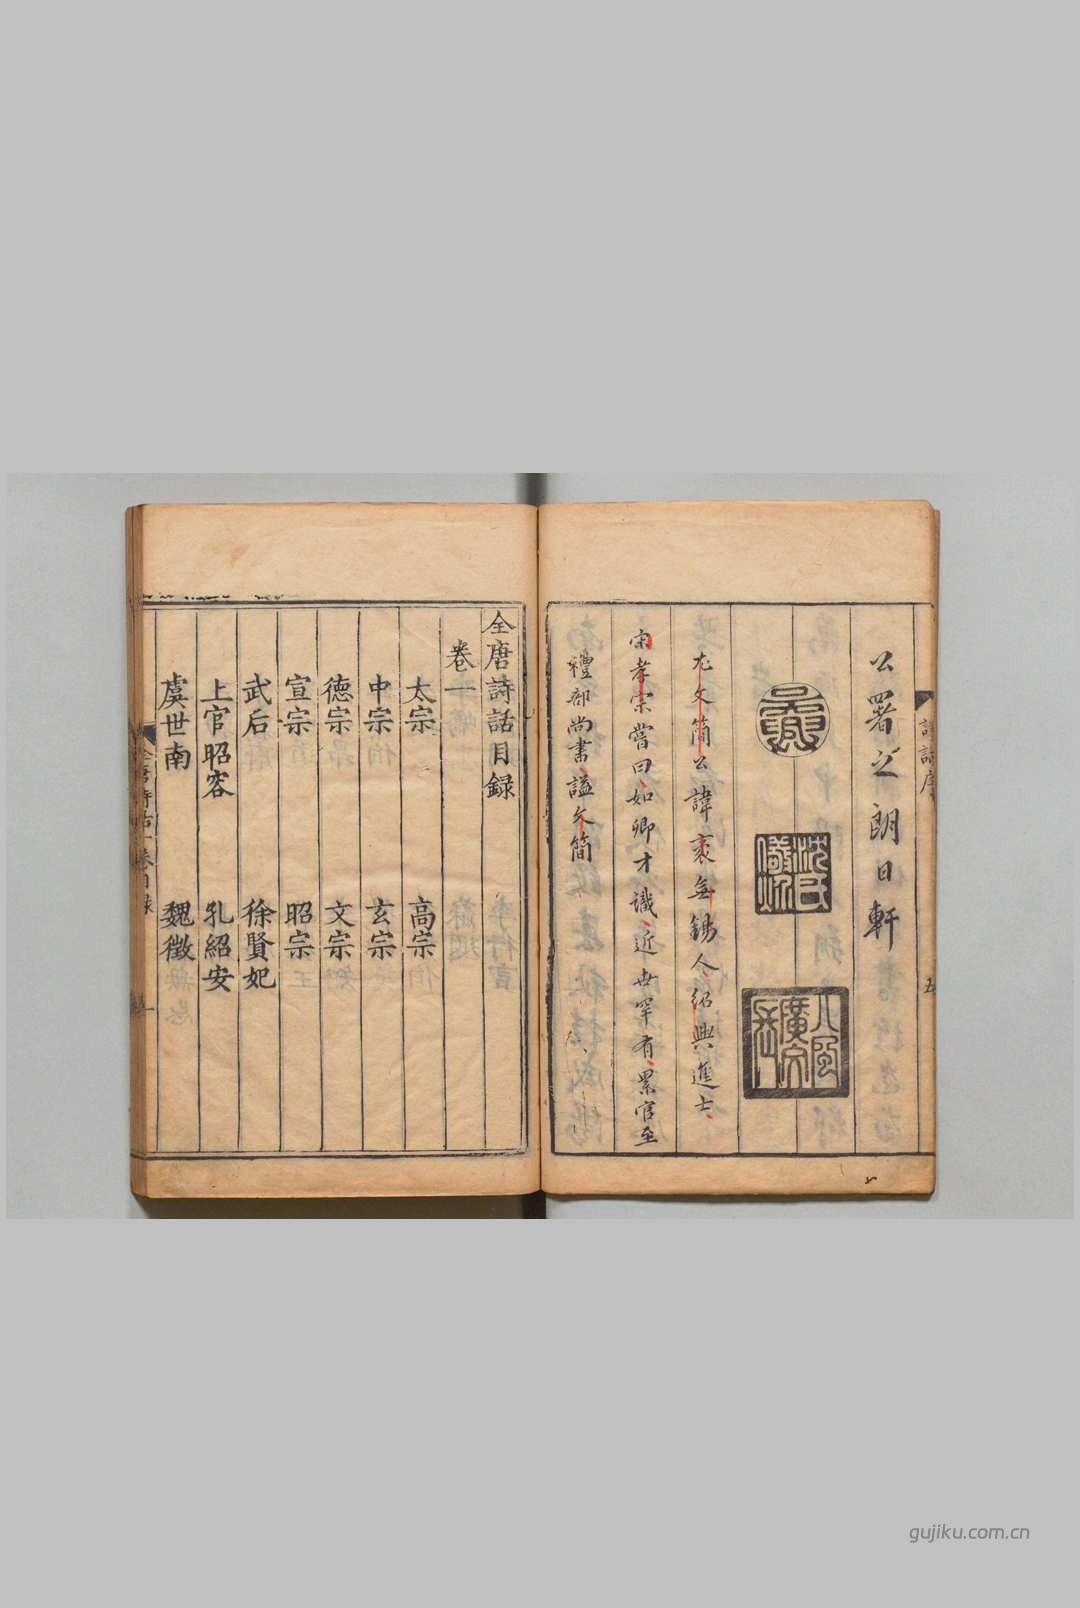 公署之朗日軒
沈氏
尤文簡公諱袤無錫人紹興進士
宋孝宗嘗曰如卿才識近世罕有累官至
禮部尚書謚文簡
詩話序
五
全唐詩話目録
卷一
太宗 高宗
中宗 玄宗
德宗 文宗
宣宗 昭宗
武后 徐賢妃
上官昭容 孔紹安
虞世南 魏徵
全唐詩話一卷目録
一
gujiku.com.cn